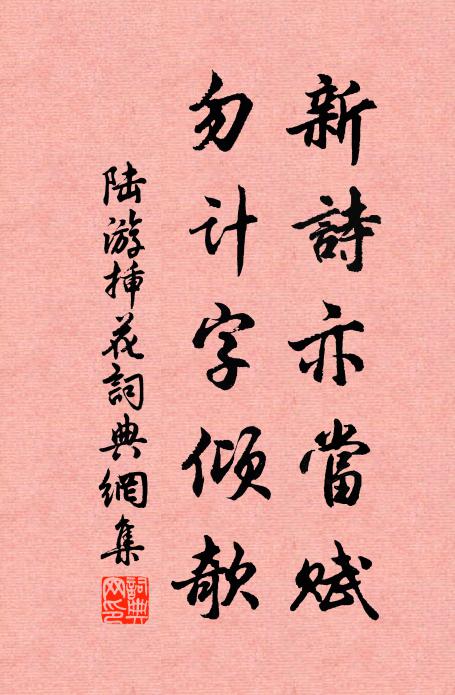 新詩亦當賦
勿计字傾欹
陆游揷花詞典網集
詞典网印